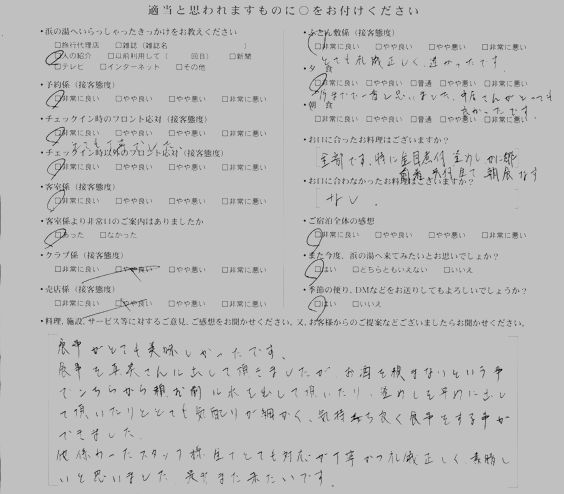 適当と思われますものに○をお付けください
・浜の湯へいらっしゃったきっかけをお教えください
□旅行代理店 □雑誌（雑誌名 ）
□人の紹介 □以前利用して（ 回目） □新聞
□テレビ □インターネット □その他
・予約係（接客態度）
□非常に良い □やや良い □やや悪い □非常に悪い
・チェックイン時のフロント応対（接客態度）
□非常に良い □やや良い □やや悪い □非常に悪い
・チェックイン時以外のフロント応対（接客態度）
□非常に良い □やや良い □やや悪い □非常に悪い
・客室係（接客態度）
□非常に良い □やや良い □やや悪い □非常に悪い
・客室係より非常口のご案内はありましたか
□あった □なかった
・クラブ係（接客態度）
□非常に良い □やや良い □やや悪い □非常に悪い
・売店係（接客態度）
□非常に良い □やや良い □やや悪い □非常に悪い
・ふとん敷係（接客態度）
□非常に良い □やや良い □やや悪い □非常に悪い
とても礼儀正しく、速かったです
・夕 食
□非常に良い □やや良い □普通 □やや悪い □非常に悪い
今までで一番と思いました。
・朝 食
□非常に良い □やや良い □普通 □やや悪い □非常に悪い
良かったです。
・お口に合ったお料理はございますか？
全部です。特に金目煮付
・お口に合わなかったお料理はございますか？
ナシ．
・ご宿泊全体の感想
□非常に良い □やや良い □やや悪い □非常に悪い
・また今度、浜の湯へ来てみたいとお思いでしょうか？
□はい □どちらともいえない □いいえ
・季節の便り、DMなどをお送りしてもよろしいでしょうか？
□はい □いいえ
・料理、施設、サービス等に対するご意見、ご感想をお聞かせください。又、お客様からのご提案などございましたらお聞かせください。
食事がとても美味しかったです。
食事を 出して頂きましたが、お酒を飲まないという事
でこちらから頼む前に水を出して頂いたり、 早めに出し
て頂いたりととても気配りが細かく、気持ち良く食事をする事が
できました。
他、係わったスタッフ様、全てとても対応が丁寧かつ礼儀正しく、素晴し
いと思いました。是非また来たいです。